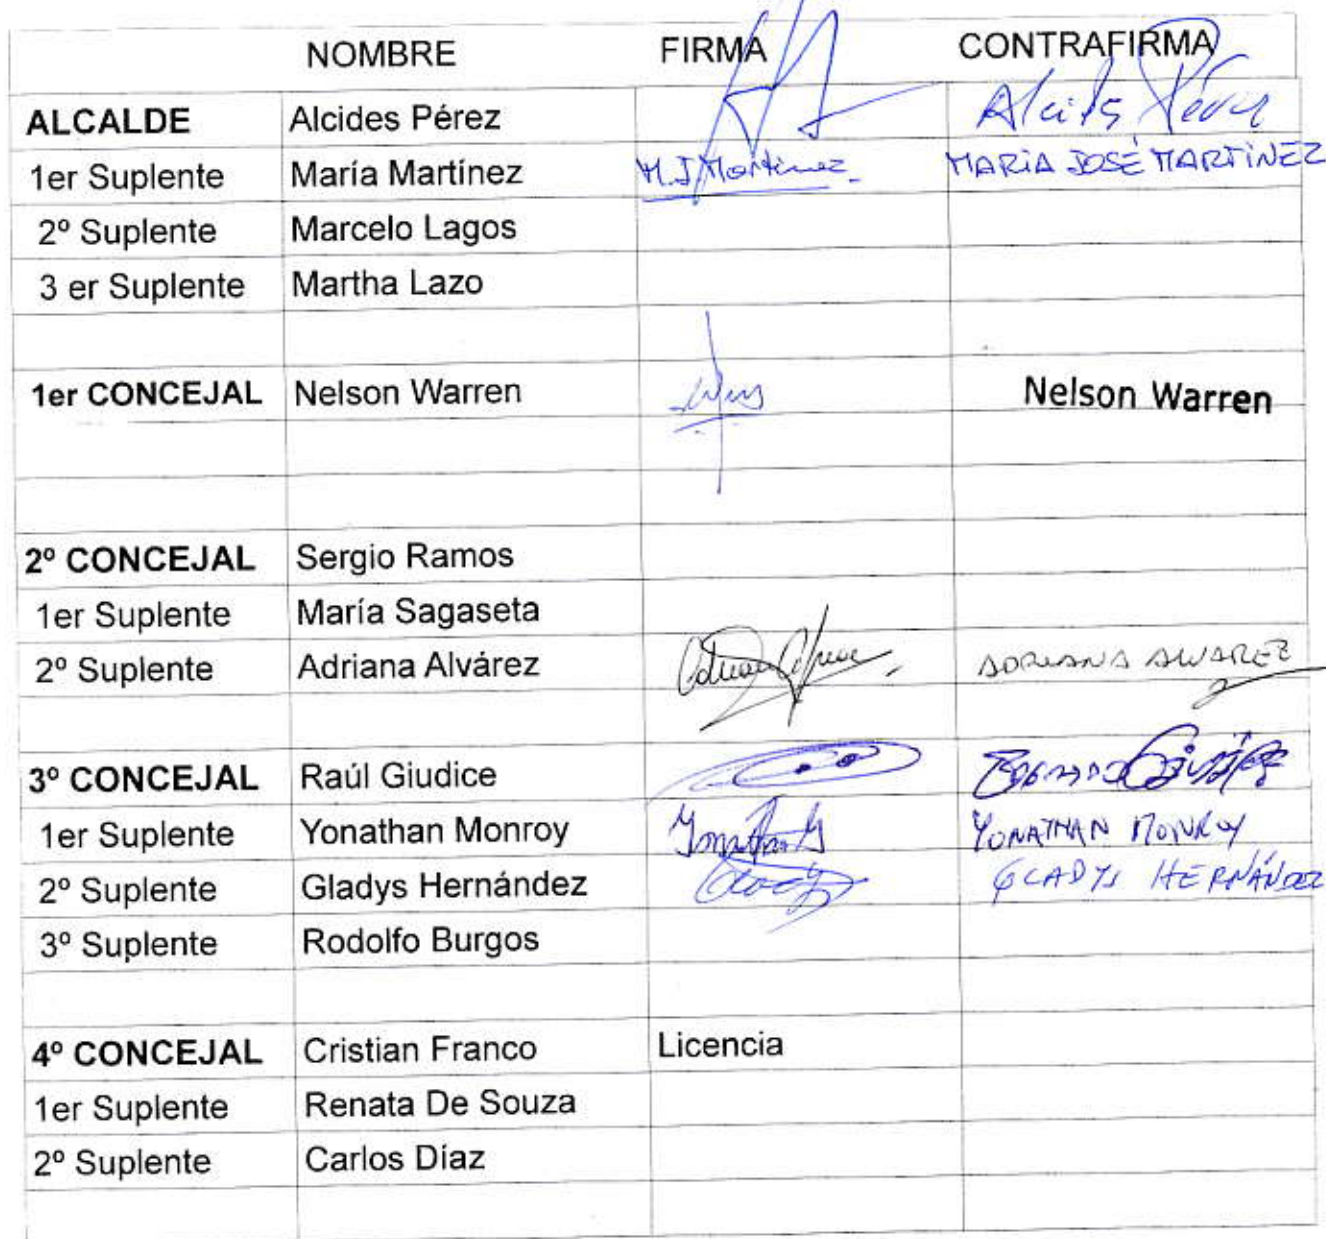 NOMBRE FIRMA CONTRAFIRMA
ALCALDE Alcides Pérez Alcides Pérez
1er Suplente María Martínez M.J Martínez MARÍA JOSÉ MARTÍNEZ
2º Suplente Marcelo Lagos
3 er Suplente Martha Lazo
1er CONCEJAL Nelson Warren Nelson Warren
2º CONCEJAL Sergio Ramos
1er Suplente María Sagaseta
2º Suplente Adriana Alvárez ADRIANA ALVAREZ
3º CONCEJAL Raúl Giudice
1er Suplente Yonathan Monroy YONATHAN MONROY
2º Suplente Gladys Hernández GLADYS HERNÁNDEZ
3º Suplente Rodolfo Burgos
4º CONCEJAL Cristian Franco Licencia
1er Suplente Renata De Souza
2º Suplente Carlos Díaz